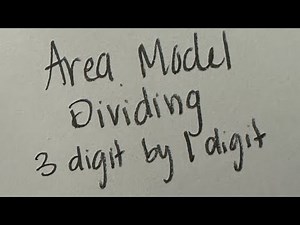 Area Model
Dividing
3 digit by 1 digit